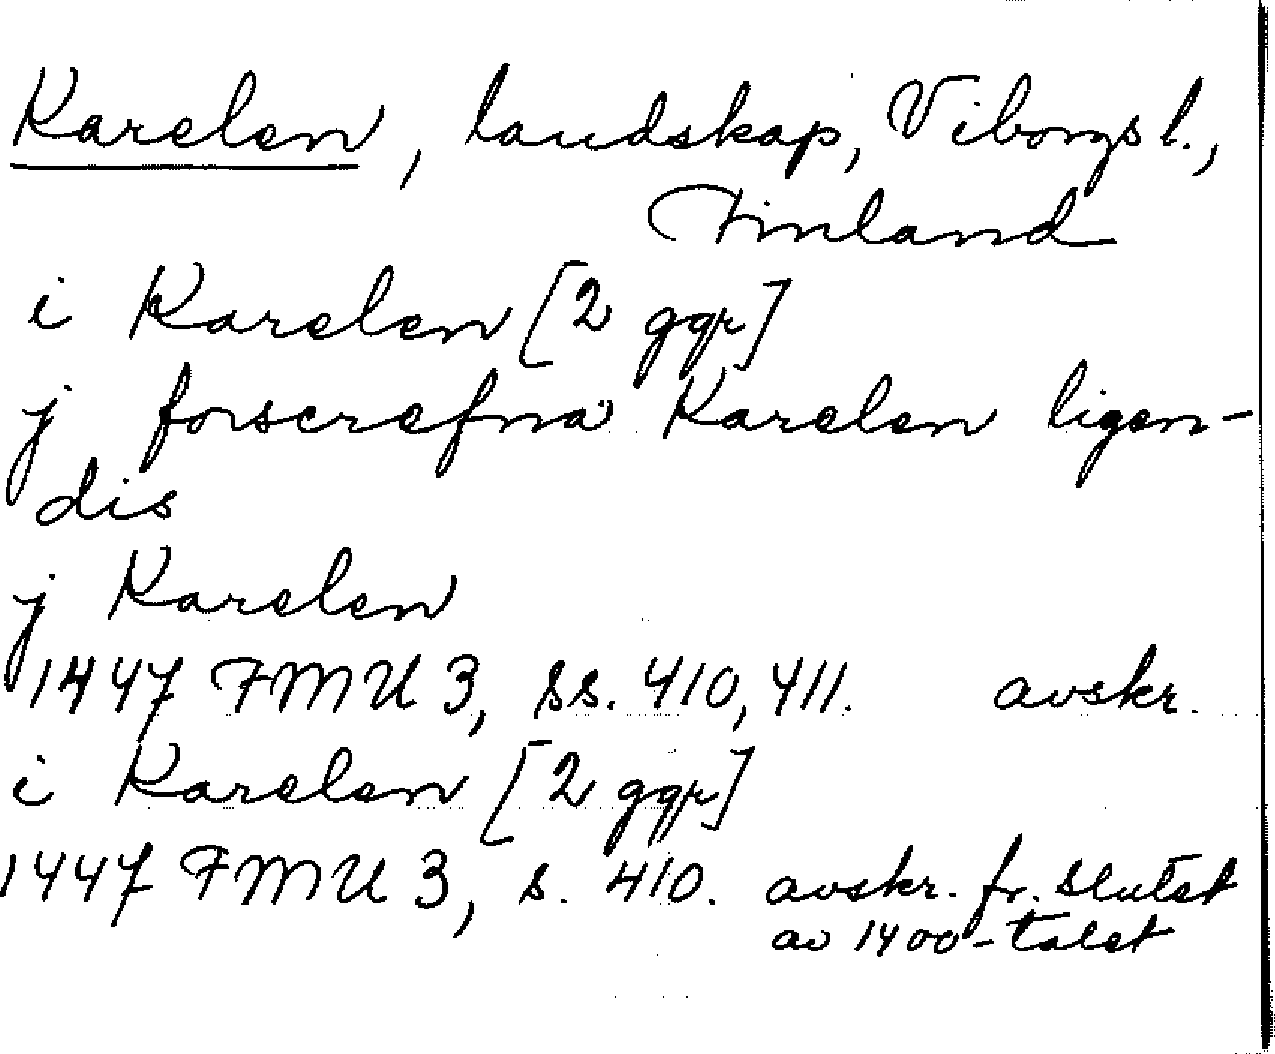 Karelen, landskap, Viborgs l.,
Finland
i Karelen [2 ggr]
j forscrefna Karelen ligen-
dis
j Karelen
1447 FMU 3, ss. 410, 411. avskr.
i Karelen [2 ggr]
1447 FMU 3, s. 410. avskr. fr. slutet
av 1400-talet